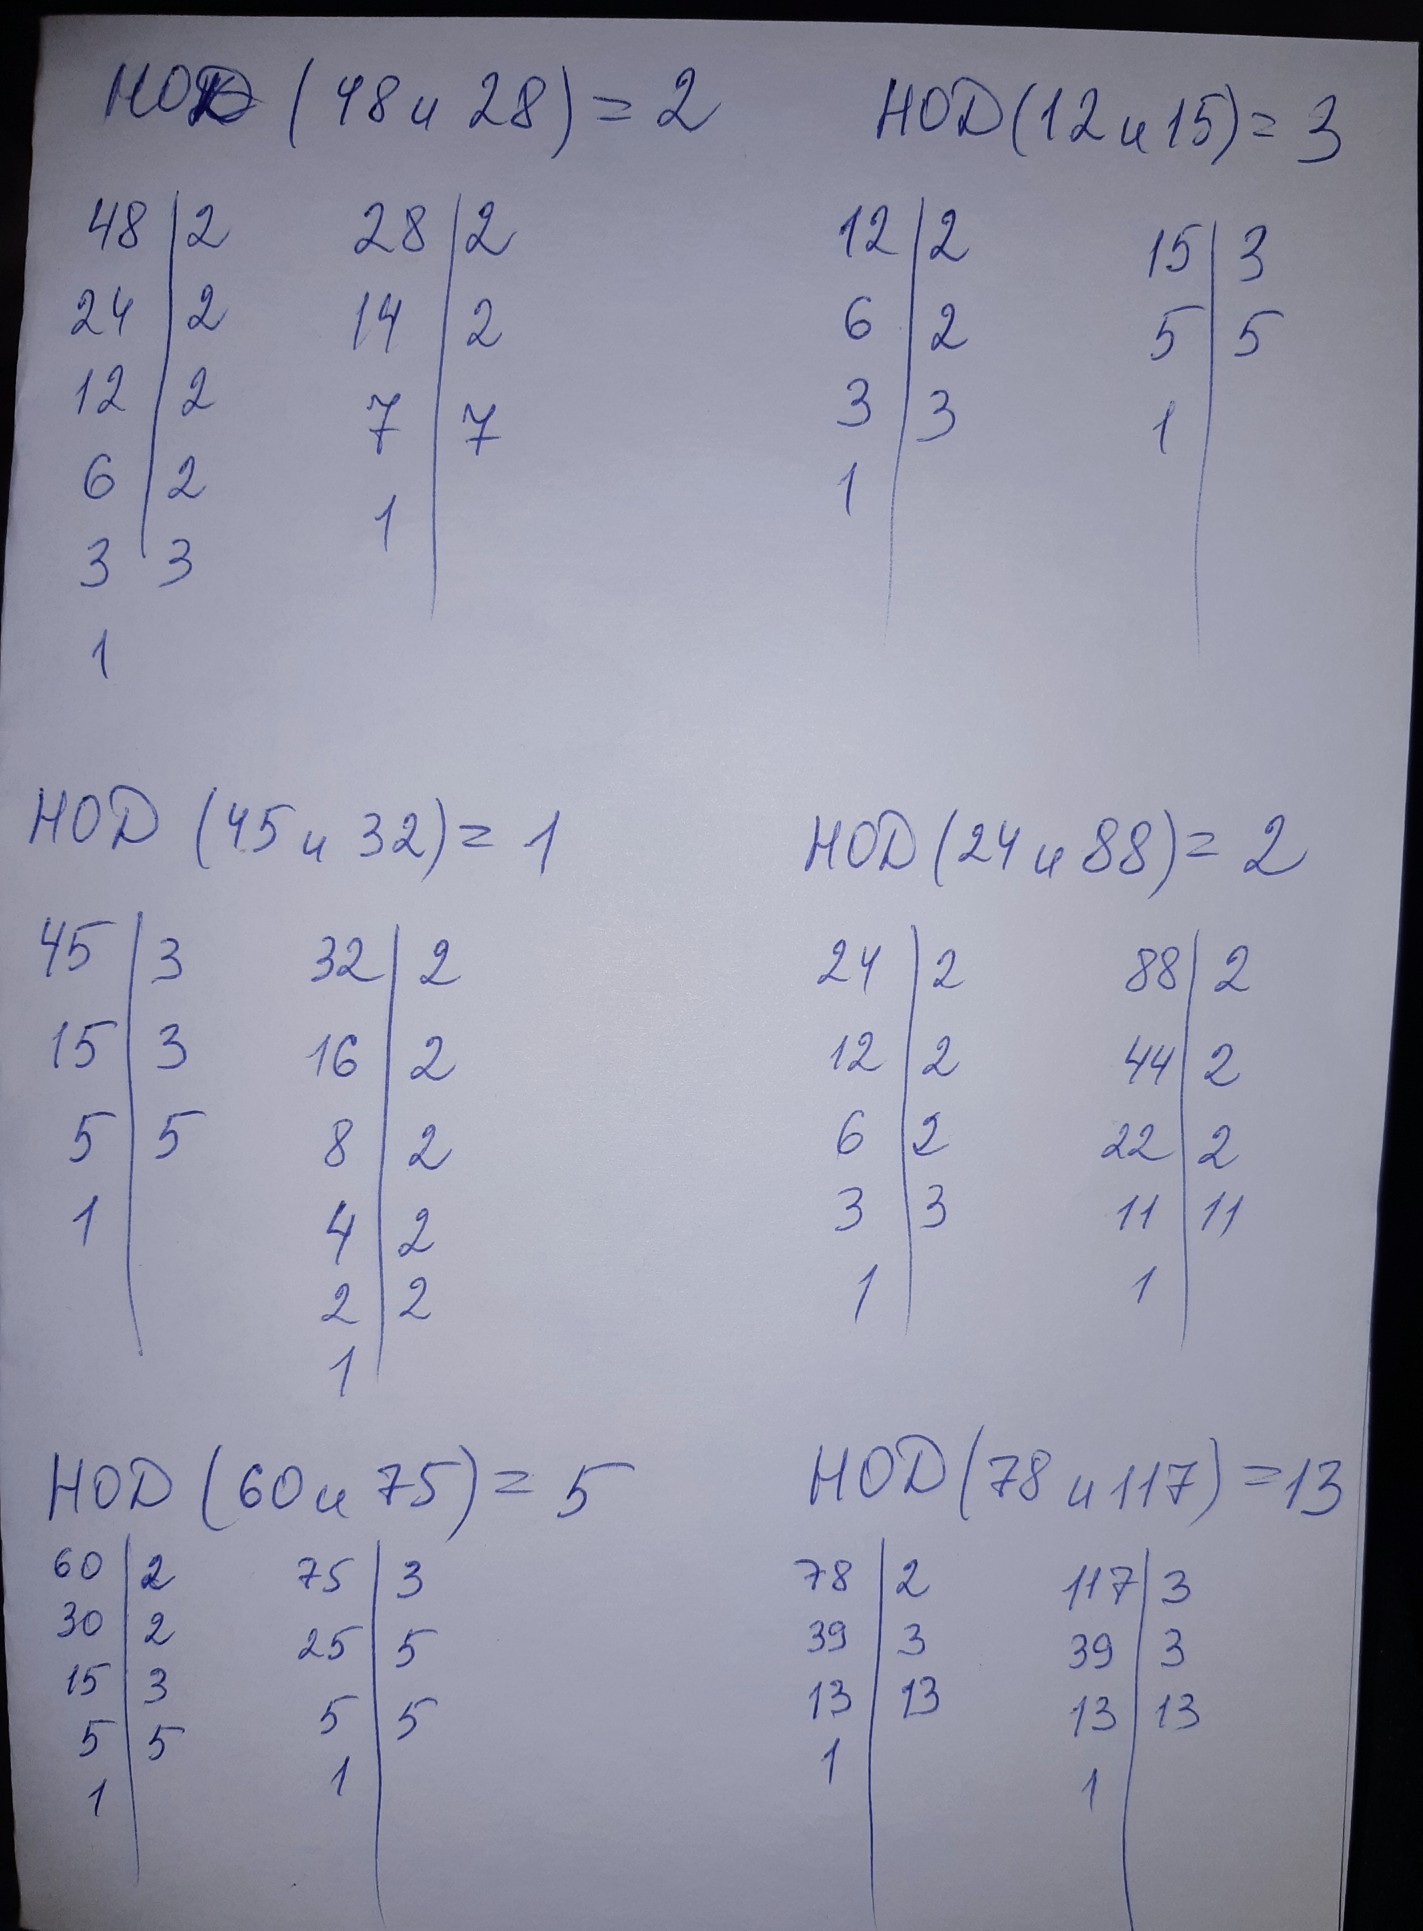 НОД (48 и 28) = 2
НОД (12 и 15) = 3
48 | 2
24 | 2
12 | 2
6 | 2
3 3
1
28 | 2
14 | 2
7 | 7
1
12 | 2
6 | 2
3 | 3
1
15 | 3
5 | 5
1
НОД (45 и 32) = 1
НОД (24 и 88) = 2
45 | 3
15 | 3
5 | 5
1
32 | 2
16 | 2
8 | 2
4 | 2
2 | 2
1
24 | 2
12 | 2
6 | 2
3 | 3
1
88 | 2
44 | 2
22 | 2
11 | 11
1
НОД (60 и 75) = 5
НОД (78 и 117) = 13
60 | 2
30 | 2
15 | 3
5 | 5
1
75 | 3
25 | 5
5 | 5
1
78 | 2
39 | 3
13 | 13
1
117 | 3
39 | 3
13 | 13
1